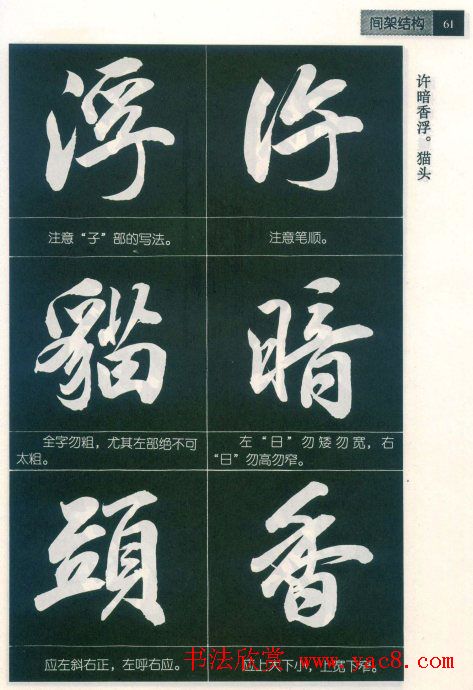 间架结构 61
许暗香浮。猫头
許
注意笔顺。
暗
左“日”勿矮勿宽，右
“日”勿高勿窄。
香
应上大下小，上宽下窄。
浮
注意“子”部的写法。
貓
全字勿粗，尤其左部绝不可
太粗。
頭
应左斜右正，左呼右应。
书法欣赏 www.yac8.com